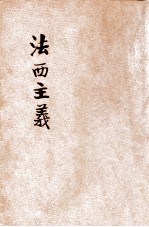 法西主義